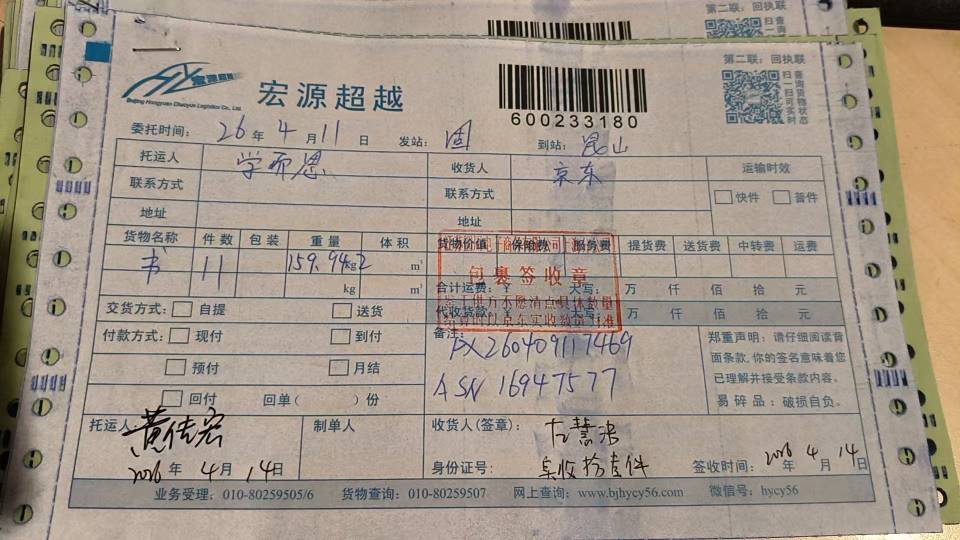 第二联：回执联
扫查
一询
第二联：回执联
扫查
一询
扫货
可物
实状
时态
宏源超越
Beijing Hongyuan Chaoyue Logistics Co., Ltd.
宏源超越
600233180
委托时间： 26 年 4 月 11 日 发站： 固 到站： 昆山
托运人 学而思 收货人 京东 运输时效
联系方式 联系方式 快件 普件
地址 地址
货物名称 件数 包装 重量 体积 货物价值 保险费 服务费 提货费 送货费 中转费 运费
书 11 159.94kg m³
包裹签收章
kg m³ 合计运费：¥ 大写： 万 仟 佰 拾 元
交货方式： 自提 送货 代收货款：¥ 大写 万 仟 佰 拾 元
付款方式： 现付 到付 备注：
预付 月结
回付 回单（ ）份
PX260409117469
ASN 16947577
郑重声明：请仔细阅读背
面条款，你的签名意味着您
已理解并接受条款内容。
易碎品：破损自负。
托运人： 黄佳宏 制单人 收货人(签章)：
2026 年 4 月 14 日 身份证号： 实收拾壹件 签收时间： 2026 年 4 月 14 日
业务受理：010-80259505/6 货物查询：010-80259507 网上查询：www.bjhycy56.com 微信号：hycy56